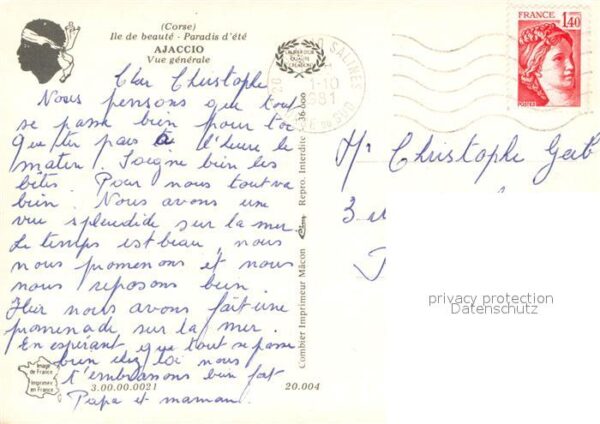 (Corse)
Ile de beauté - Paradis d'été
AJACCIO
Vue générale
Cher Christophe
Nous pensons que tout
se passe bien pour toi
que tu pars à l'heure le
matin. Soigne bien les
bêtes. Pour nous tout va
bien. Nous avons une
vue splendide sur la mer.
Le temps est beau, nous
nous promenons et nous
nous reposons bien.
Hier nous avons fait une
promenade sur la mer.
En espérant que tout se passe
bien chez toi nous
t'embrassons bien fort
Papa et maman.
Image
de France
Imprimée
en France
3.00.00.0021
20.004
Combier Imprimeur Mâcon
Repro. Interdite
36.000
SALINES
1-10
1981
DU SUD
FRANCE
1,40
POSTES
Mr Christophe
3
privacy protection
Datenschutz